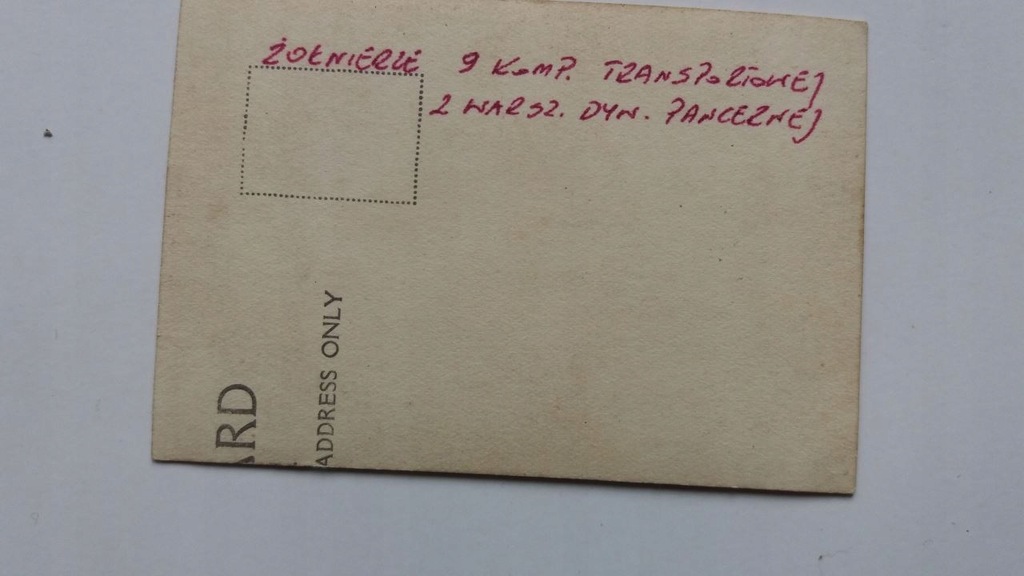 ŻOŁNIERZE 9 KOMP. TRANSPORTOWEJ
2 WARSZ. DYW. PANCERNEJ
ARD
ADDRESS ONLY